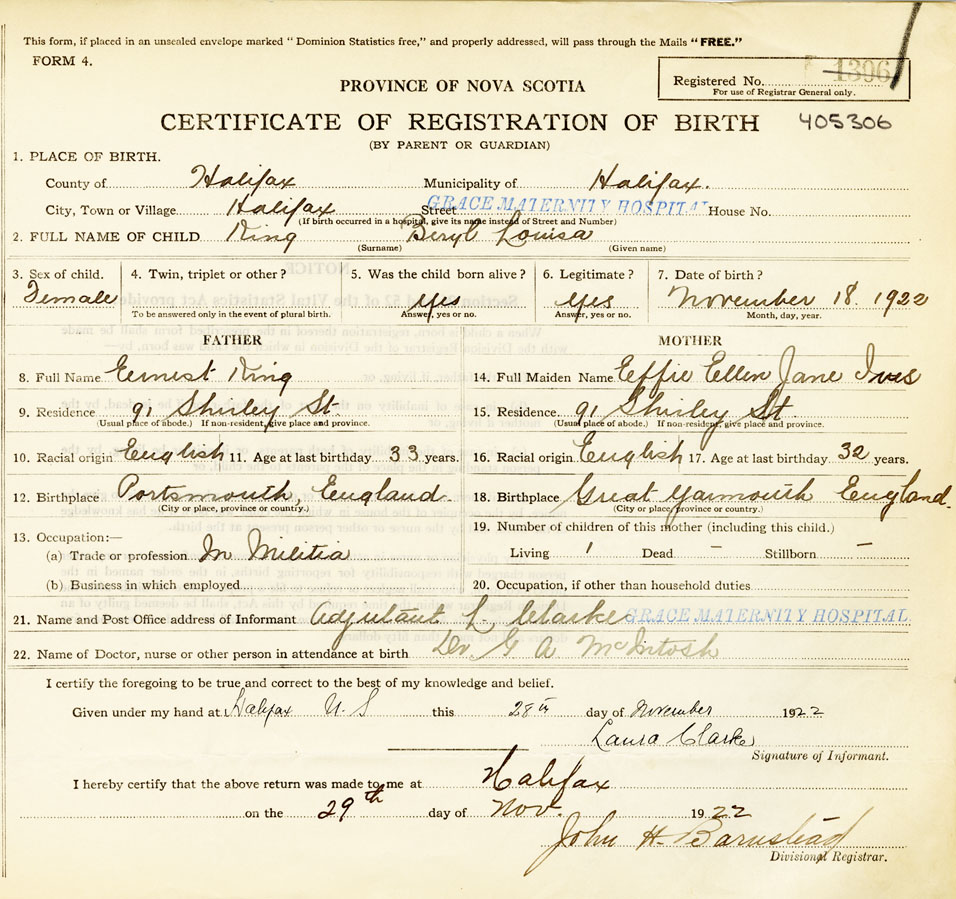 This form, if placed in an unsealed envelope marked "Dominion Statistics free," and properly addressed, will pass through the Mails "FREE."
FORM 4.
Registered No. 1396
For use of Registrar General only.
PROVINCE OF NOVA SCOTIA
CERTIFICATE OF REGISTRATION OF BIRTH 405306
(BY PARENT OR GUARDIAN)
1. PLACE OF BIRTH.
County of Halifax Municipality of Halifax.
City, Town or Village Halifax Street GRACE MATERNITY HOSPITAL House No.
(If birth occurred in a hospital, give its name instead of Street and Number)
2. FULL NAME OF CHILD King Beryl Louisa
(Surname) (Given name)
3. Sex of child. 4. Twin, triplet or other? 5. Was the child born alive? 6. Legitimate? 7. Date of birth?
Female Yes Yes November 18. 1922
To be answered only in the event of plural birth. Answer, yes or no. Answer, yes or no. Month, day, year.
FATHER MOTHER
8. Full Name Ernest King 14. Full Maiden Name Effie Ellen Jane Ives
9. Residence 91 Shirley St. 15. Residence 91 Shirley St
(Usual place of abode.) If non-resident, give place and province. (Usual place of abode.) If non-resident, give place and province.
10. Racial origin English 11. Age at last birthday 33 years. 16. Racial origin English 17. Age at last birthday 32 years.
12. Birthplace Portsmouth, England. 18. Birthplace Great Yarmouth England.
(City or place, province or country.) (City or place, province or country.)
13. Occupation:— 19. Number of children of this mother (including this child.)
(a) Trade or profession In Militia Living 1 Dead – Stillborn –
(b) Business in which employed 20. Occupation, if other than household duties
21. Name and Post Office address of Informant Adjutant L. Clarke GRACE MATERNITY HOSPITAL
22. Name of Doctor, nurse or other person in attendance at birth Dr G A McIntosh
I certify the foregoing to be true and correct to the best of my knowledge and belief.
Given under my hand at Halifax N.S this 28th day of November 1922
Laura Clarke
Signature of Informant.
I hereby certify that the above return was made to me at Halifax
on the 29th day of Nov. 1922
John H. Barnstead
Divisional Registrar.